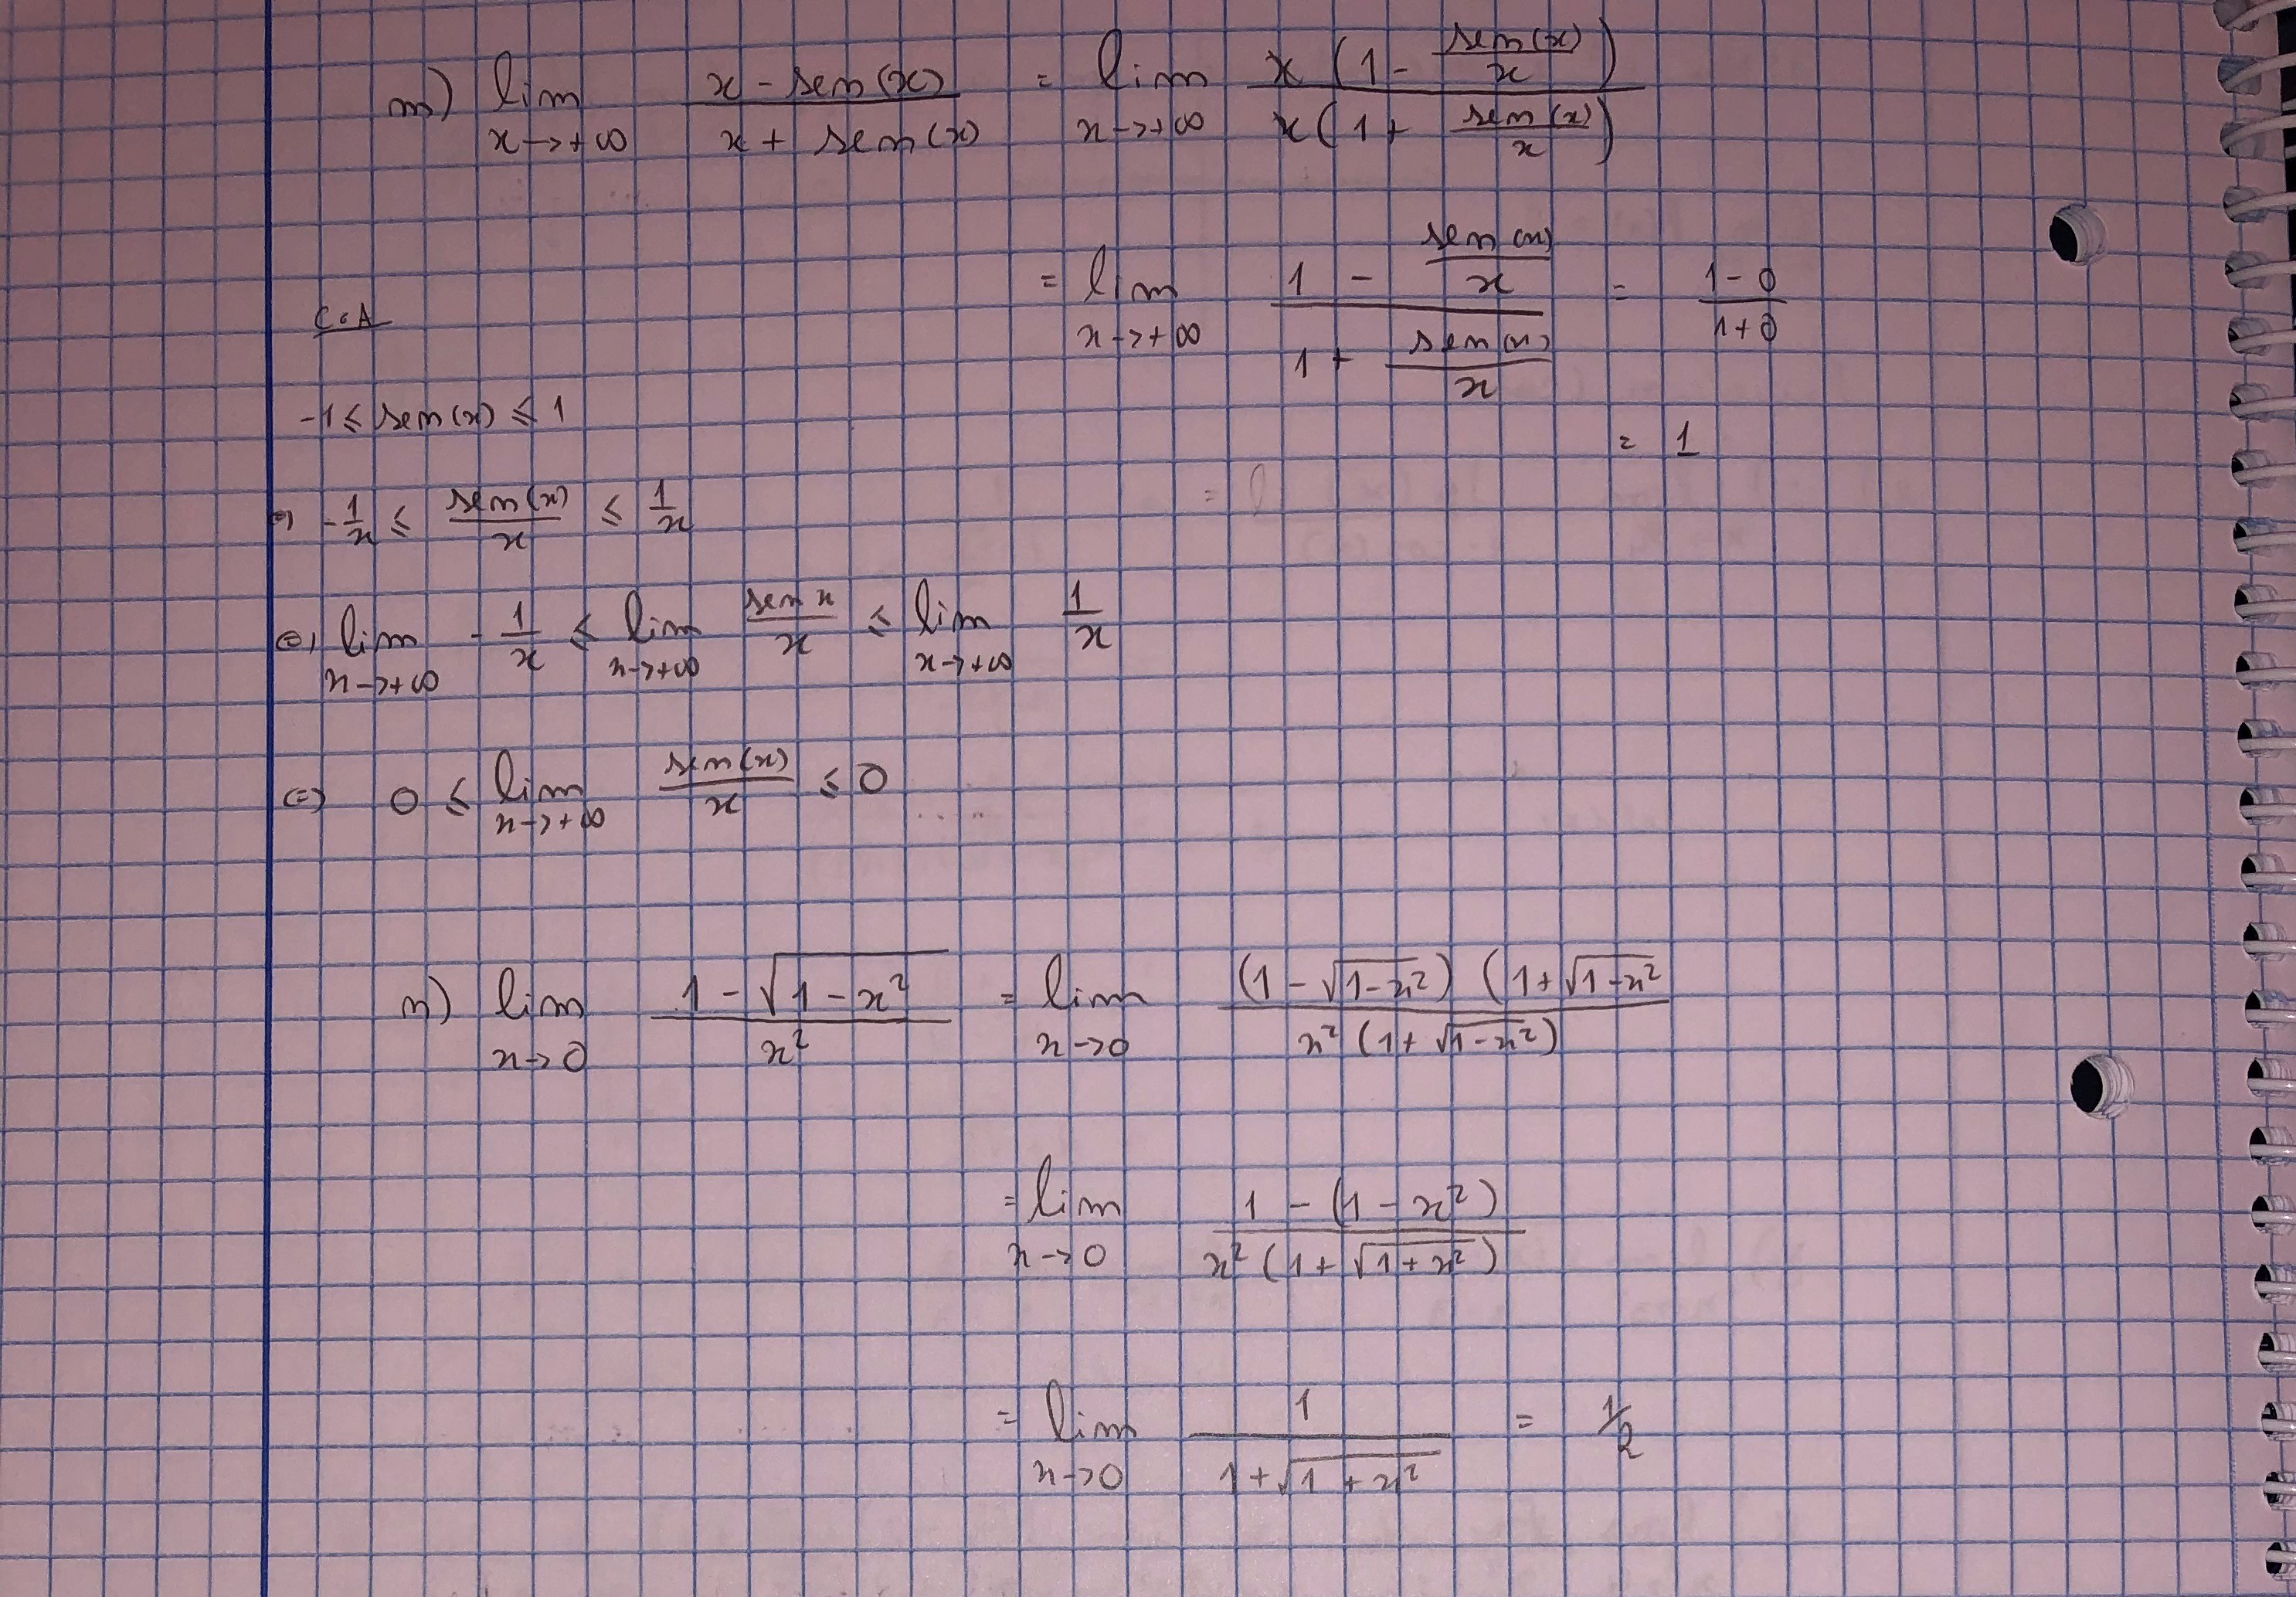 m) lim x→+∞ (x - sen(x))/(x + sen(x)) = lim x→+∞ (x(1 - sen(x)/x))/(x(1 + sen(x)/x))
= lim x→+∞ (1 - sen(x)/x)/(1 + sen(x)/x) = (1-0)/(1+0)
C.A
-1 ≤ sen(x) ≤ 1
= 1
⇔ -1/x ≤ sen(x)/x ≤ 1/x
⇔ lim x→+∞ -1/x ≤ lim x→+∞ sen x/x ≤ lim x→+∞ 1/x
⇔ 0 ≤ lim x→+∞ sen(x)/x ≤ 0
n) lim x→0 (1 - √(1 - x²))/x² = lim x→0 ((1 - √(1-x²)) (1 + √(1-x²))/(x² (1 + √(1-x²)))
= lim x→0 (1 - (1 - x²))/(x² (1 + √(1 + x²)))
= lim x→0 1/(1 + √(1 + x²)) = 1/2